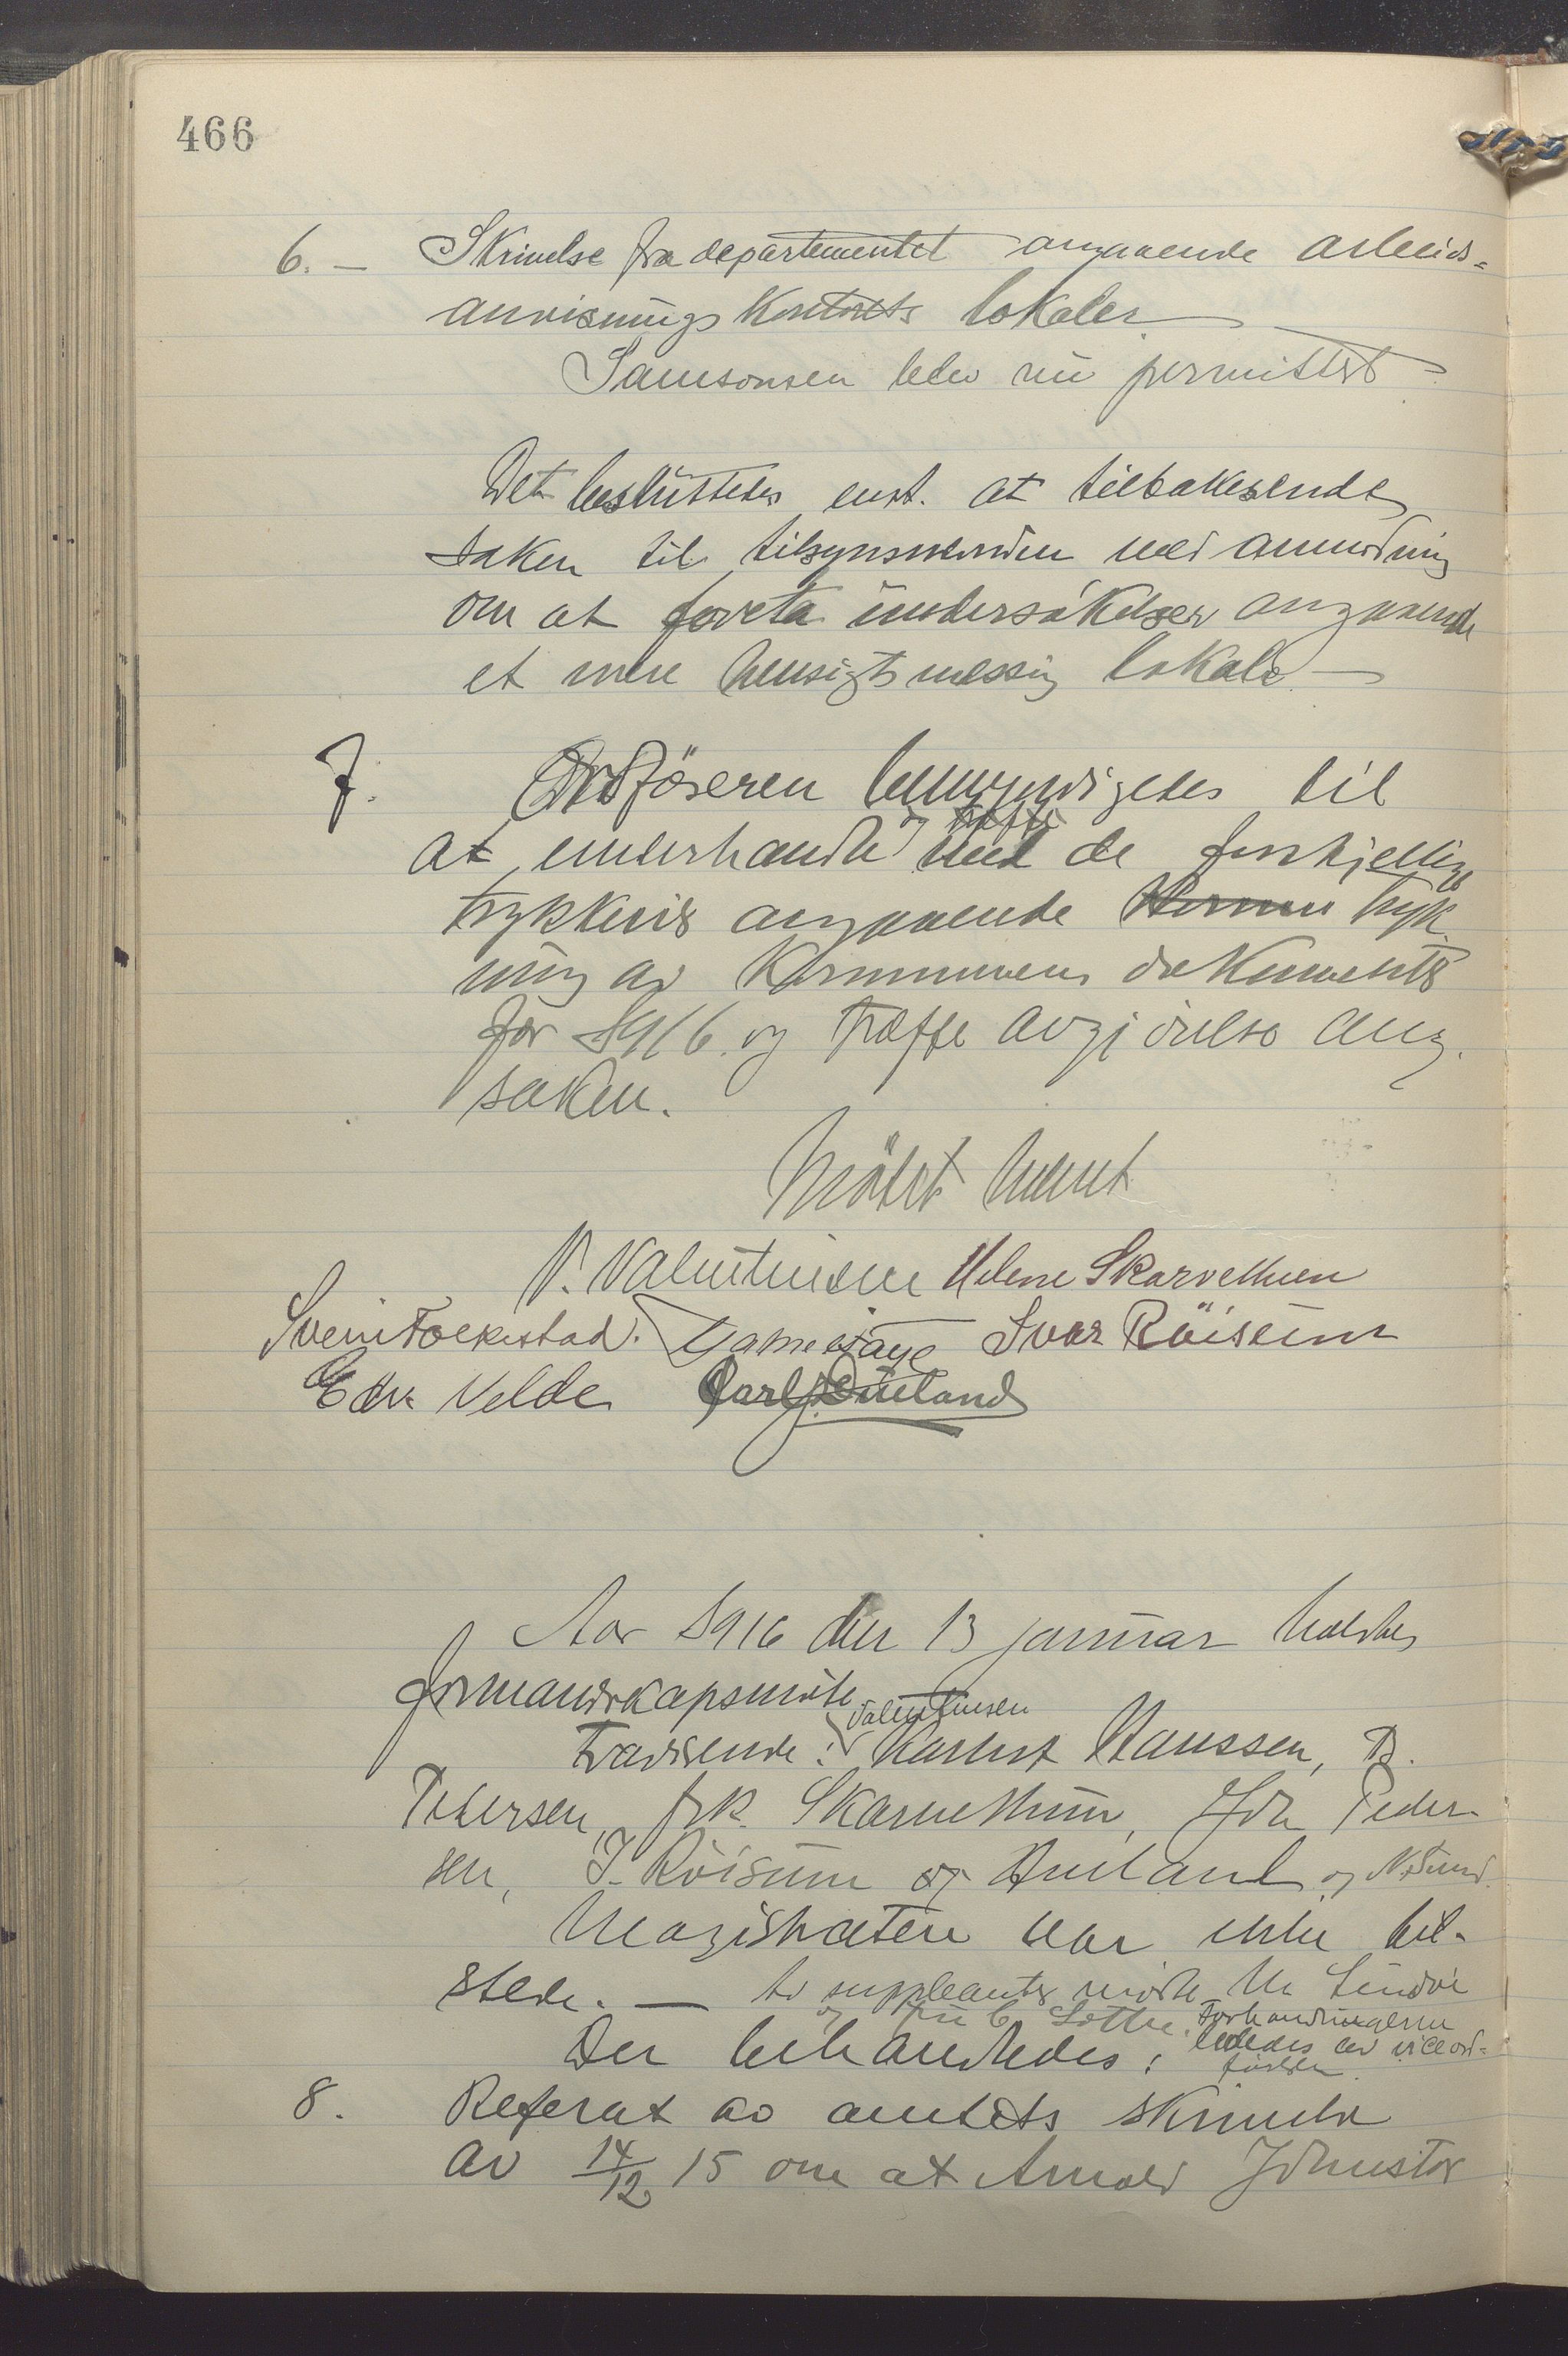 466
6. — Skrivelse fra departementet angaaende arbeids-
anvisningskontorets lokaler
Samsonsen blev nu permittert
Det besluttedes enst. at tilbakesende
saken til tilsynsnevnden med anmodning
om at foreta undersökelser angaaende
et mere hensigtsmessig lokale. —
7. Ordföreren bemyndigedes til
at underhandle med de forskjellige
trykkerier angaaende tryk
ning av kommunens dokumenter
for 1916 og træffe avgjörelse ang.
saken.
Mötet hævet
V. Valentinsen Helene Skarvethuen
Svein Folkestad. Ivar Röisum
Edv. Velde Carl Omland
Aar 1916 den 13 januar holdtes
formandskapsmöte
Valentinsen
Tvædsende: Hanssen, B.
Petersen, frk. Skarvethun, Joh Peder-
sen, I. Röisum og Omland og N. Sund.
Magistraten var ikke til-
stede. — to suppleanter mötte Lindöe
og fru C. Lothe. Forhandlingerne
Der behandledes: lededes av viceord-
föreren.
8. Referat av amtets skrivelse
av 14/12 15 om at Arnold Johnston